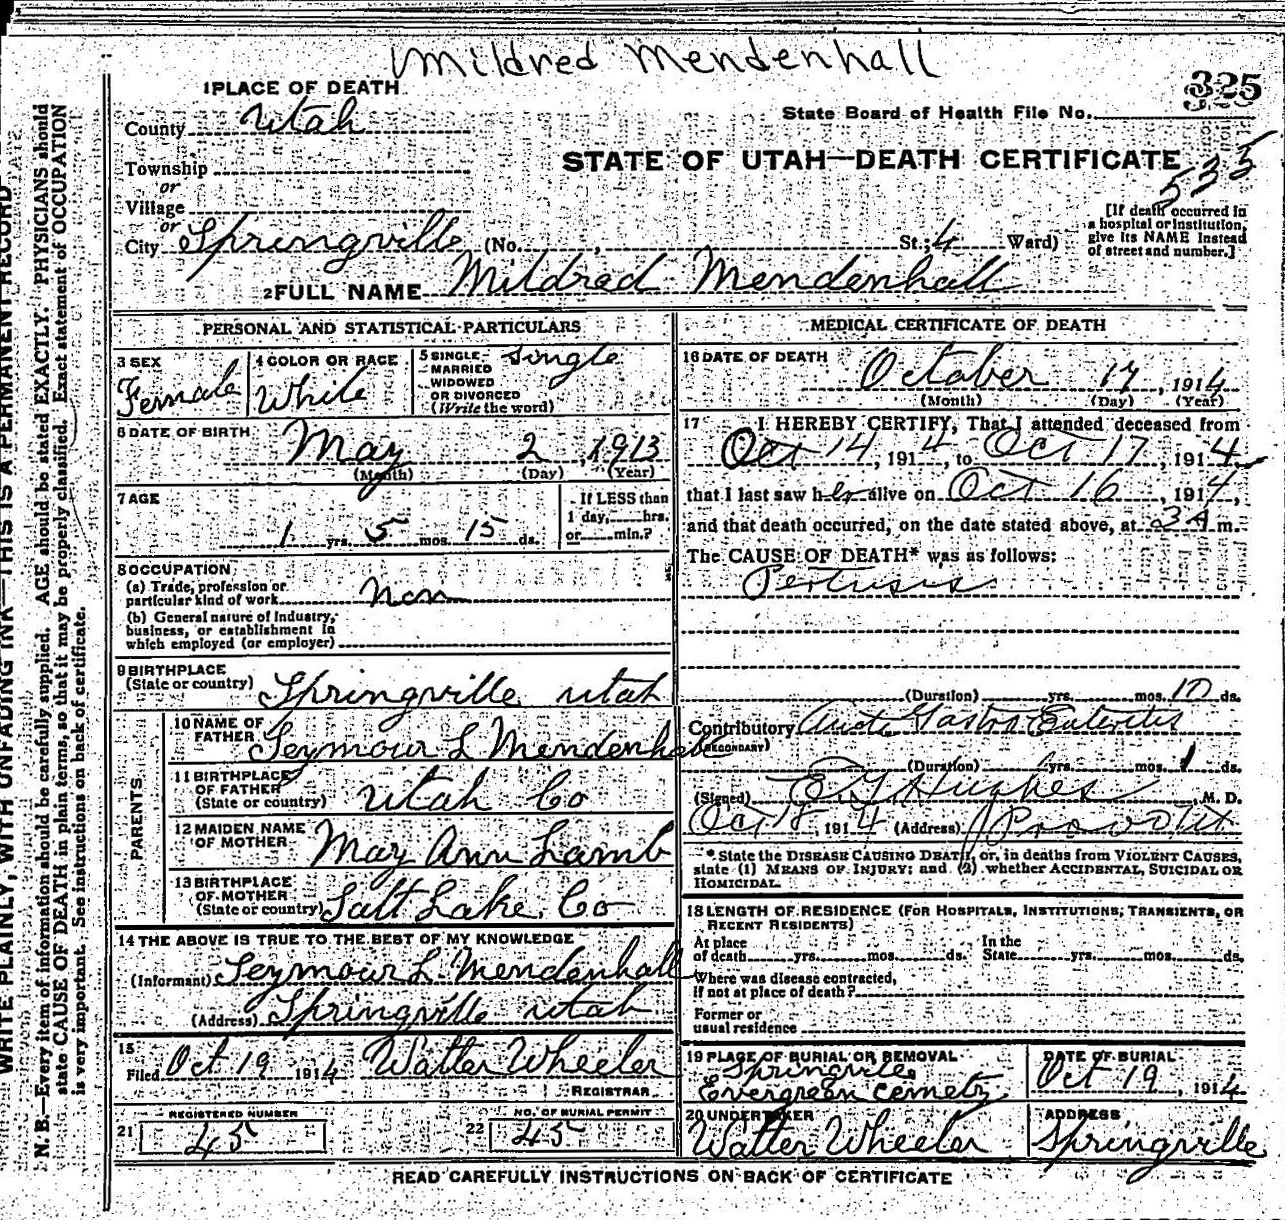 Mildred Mendenhall
325
1 PLACE OF DEATH
County Utah
State Board of Health File No.
Township
or
STATE OF UTAH—DEATH CERTIFICATE
535
Village
or
City Springville (No. , St.; 4 Ward)
[If death occurred in
a hospital or institution,
give its NAME instead
of street and number.]
2 FULL NAME Mildred Mendenhall
PERSONAL AND STATISTICAL PARTICULARS
3 SEX
Female
4 COLOR OR RACE
White
5 SINGLE, Single
MARRIED
WIDOWED
OR DIVORCED
(Write the word)
6 DATE OF BIRTH
May 2, 1913
(Month) (Day) (Year)
7 AGE
1 yrs. 5 mos. 15 ds.
If LESS than
1 day, hrs.
or min.?
8 OCCUPATION
(a) Trade, profession or
particular kind of work Non
(b) General nature of Industry,
business, or establishment in
which employed (or employer)
9 BIRTHPLACE
(State or country) Springville Utah
PARENTS
10 NAME OF
FATHER Seymour L Mendenhall
11 BIRTHPLACE
OF FATHER
(State or country) Utah Co
12 MAIDEN NAME
OF MOTHER May Ann Lamb
13 BIRTHPLACE
OF MOTHER
(State or country) Salt Lake Co
14 THE ABOVE IS TRUE TO THE BEST OF MY KNOWLEDGE
(Informant) Seymour L. Mendenhall
(Address) Springville Utah
15
Filed Oct 19 1914 Walter Wheeler
REGISTRAR
REGISTERED NUMBER
21 45
NO. OF BURIAL PERMIT
22 45
MEDICAL CERTIFICATE OF DEATH
16 DATE OF DEATH
October 17, 1914
(Month) (Day) (Year)
17 I HEREBY CERTIFY, That I attended deceased from
Oct 14, 1914, to Oct 17, 1914
that I last saw her alive on Oct 16, 1914,
and that death occurred, on the date stated above, at 3 A m.
The CAUSE OF DEATH* was as follows:
Pertusis
(Duration) yrs. mos. 10 ds.
Contributory Acute Gastro Enteritis
(SECONDARY)
(Duration) yrs. mos. 1 ds.
(Signed) Hughes, M. D.
Oct 18, 1914 (Address) Provo Ut
* State the DISEASE CAUSING DEATH, or, in deaths from VIOLENT CAUSES,
state (1) MEANS OF INJURY; and (2) whether ACCIDENTAL, SUICIDAL OR
HOMICIDAL.
18 LENGTH OF RESIDENCE (FOR HOSPITALS, INSTITUTIONS, TRANSIENTS, OR
RECENT RESIDENTS)
At place
of death yrs. mos. ds.
In the
State yrs. mos. ds.
Where was disease contracted,
if not at place of death?
Former or
usual residence
19 PLACE OF BURIAL OR REMOVAL
Springville
Evergreen Cemety
DATE OF BURIAL
Oct 19, 1914
20 UNDERTAKER
Walter Wheeler
ADDRESS
Springville
READ CAREFULLY INSTRUCTIONS ON BACK OF CERTIFICATE
WRITE PLAINLY, WITH UNFADING INK—THIS IS A PERMANENT RECORD
N. B.—Every item of information should be carefully supplied. AGE should be stated EXACTLY. PHYSICIANS should
state CAUSE OF DEATH in plain terms, so that it may be properly classified. Exact statement of OCCUPATION
is very important. See instructions on back of certificate.